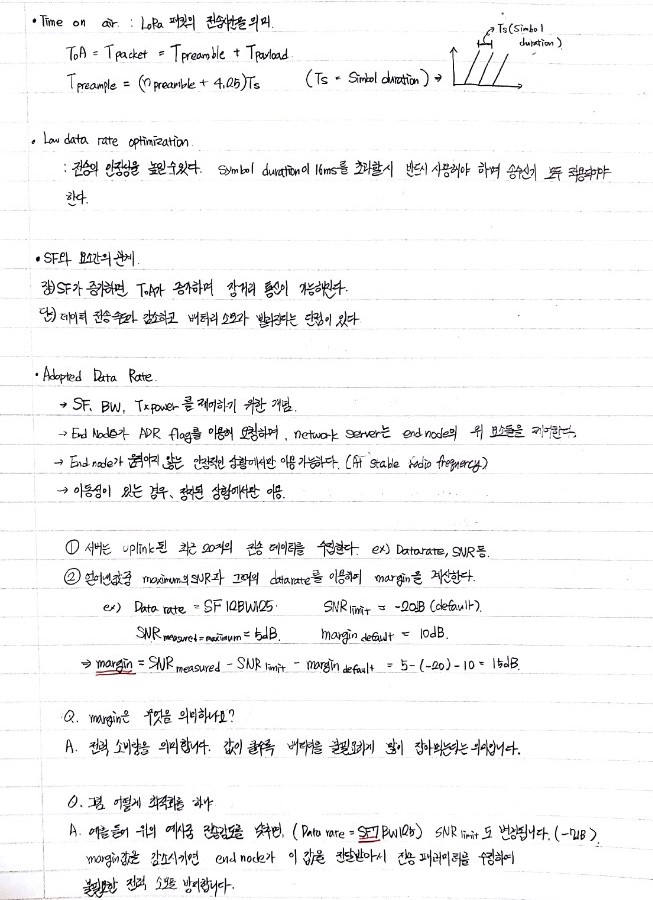 • Time on air : LoRa 패킷의 전송시간을 의미.
ToA = Tpacket = Tpreamble + Tpayload
Tpreample = (npreamble + 4.25)Ts (Ts = Simbol duration) →
Ts (Simbol
duration)
• Low data rate optimization.
: 전송의 안정성을 높일 수 있다. Symbol duration이 16ms를 초과할시 반드시 사용해야 하며 송수신기 모두 적용되어야
한다.
• SF와 요소간의 관계.
장) SF가 증가하면 ToA가 증가하며 장거리 통신이 가능해진다.
단) 데이터 전송속도가 감소하고 배터리 소모가 빨라진다는 단점이 있다
• Adapted Data Rate.
→ SF, BW, Tx power를 제어하기 위한 개념.
→ End Node가 ADR flag를 이용해 요청하며, network server는 end node의 위 요소들을 제어한다.
→ End node가 움직이지 않는 안정적인 상황에서만 이용 가능하다. (At stable radio frequency)
→ 이동성이 있는 경우, 정지된 상황에서만 이용.
① 서버는 uplink된 최근 20개의 전송 데이터를 수집한다. ex) Datarate, SNR 등.
② 얻어낸 값중 maximum의 SNR과 그때의 datarate를 이용하여 margin을 계산한다.
ex) Data rate = SF12BW125. SNR limit = -20dB (default).
SNR measured=maximum = 5dB. margin default = 10dB.
⇒ margin = SNR measured - SNR limit - margin default = 5-(-20)-10 = 15dB.
Q. margin은 무엇을 의미하나요?
A. 전력 소비량을 의미합니다. 값이 클수록 배터리를 불필요하게 많이 잡아먹는다는 의미입니다.
Q. 그럼 어떻게 최적화를 하나
A. 예를 들어 위의 예시중 전송감도를 낮추면, (Data rate = SF7BW125) SNR limit도 변경됩니다. (-7dB)
margin값을 감소시키면 end node가 이 값을 전달받아서 전송 패러미터를 수정하여
불필요한 전력 소모를 방어합니다.